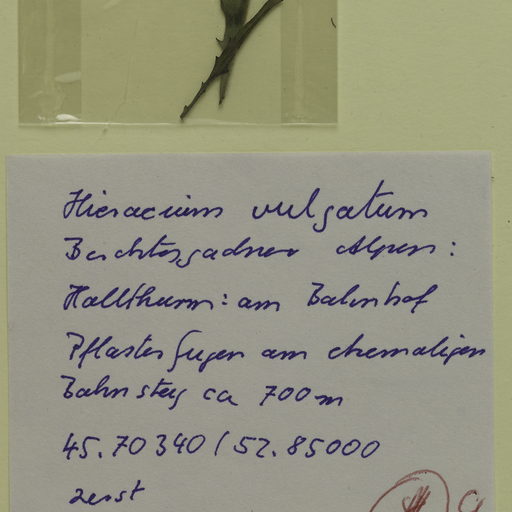 Hieracium vulgatum
Berchtesgadner Alpen:
Hallthurm: am Bahnhof
Pflasterfugen am ehemaligen
Bahnsteig ca 700m
45.70340/52.85000
zerst